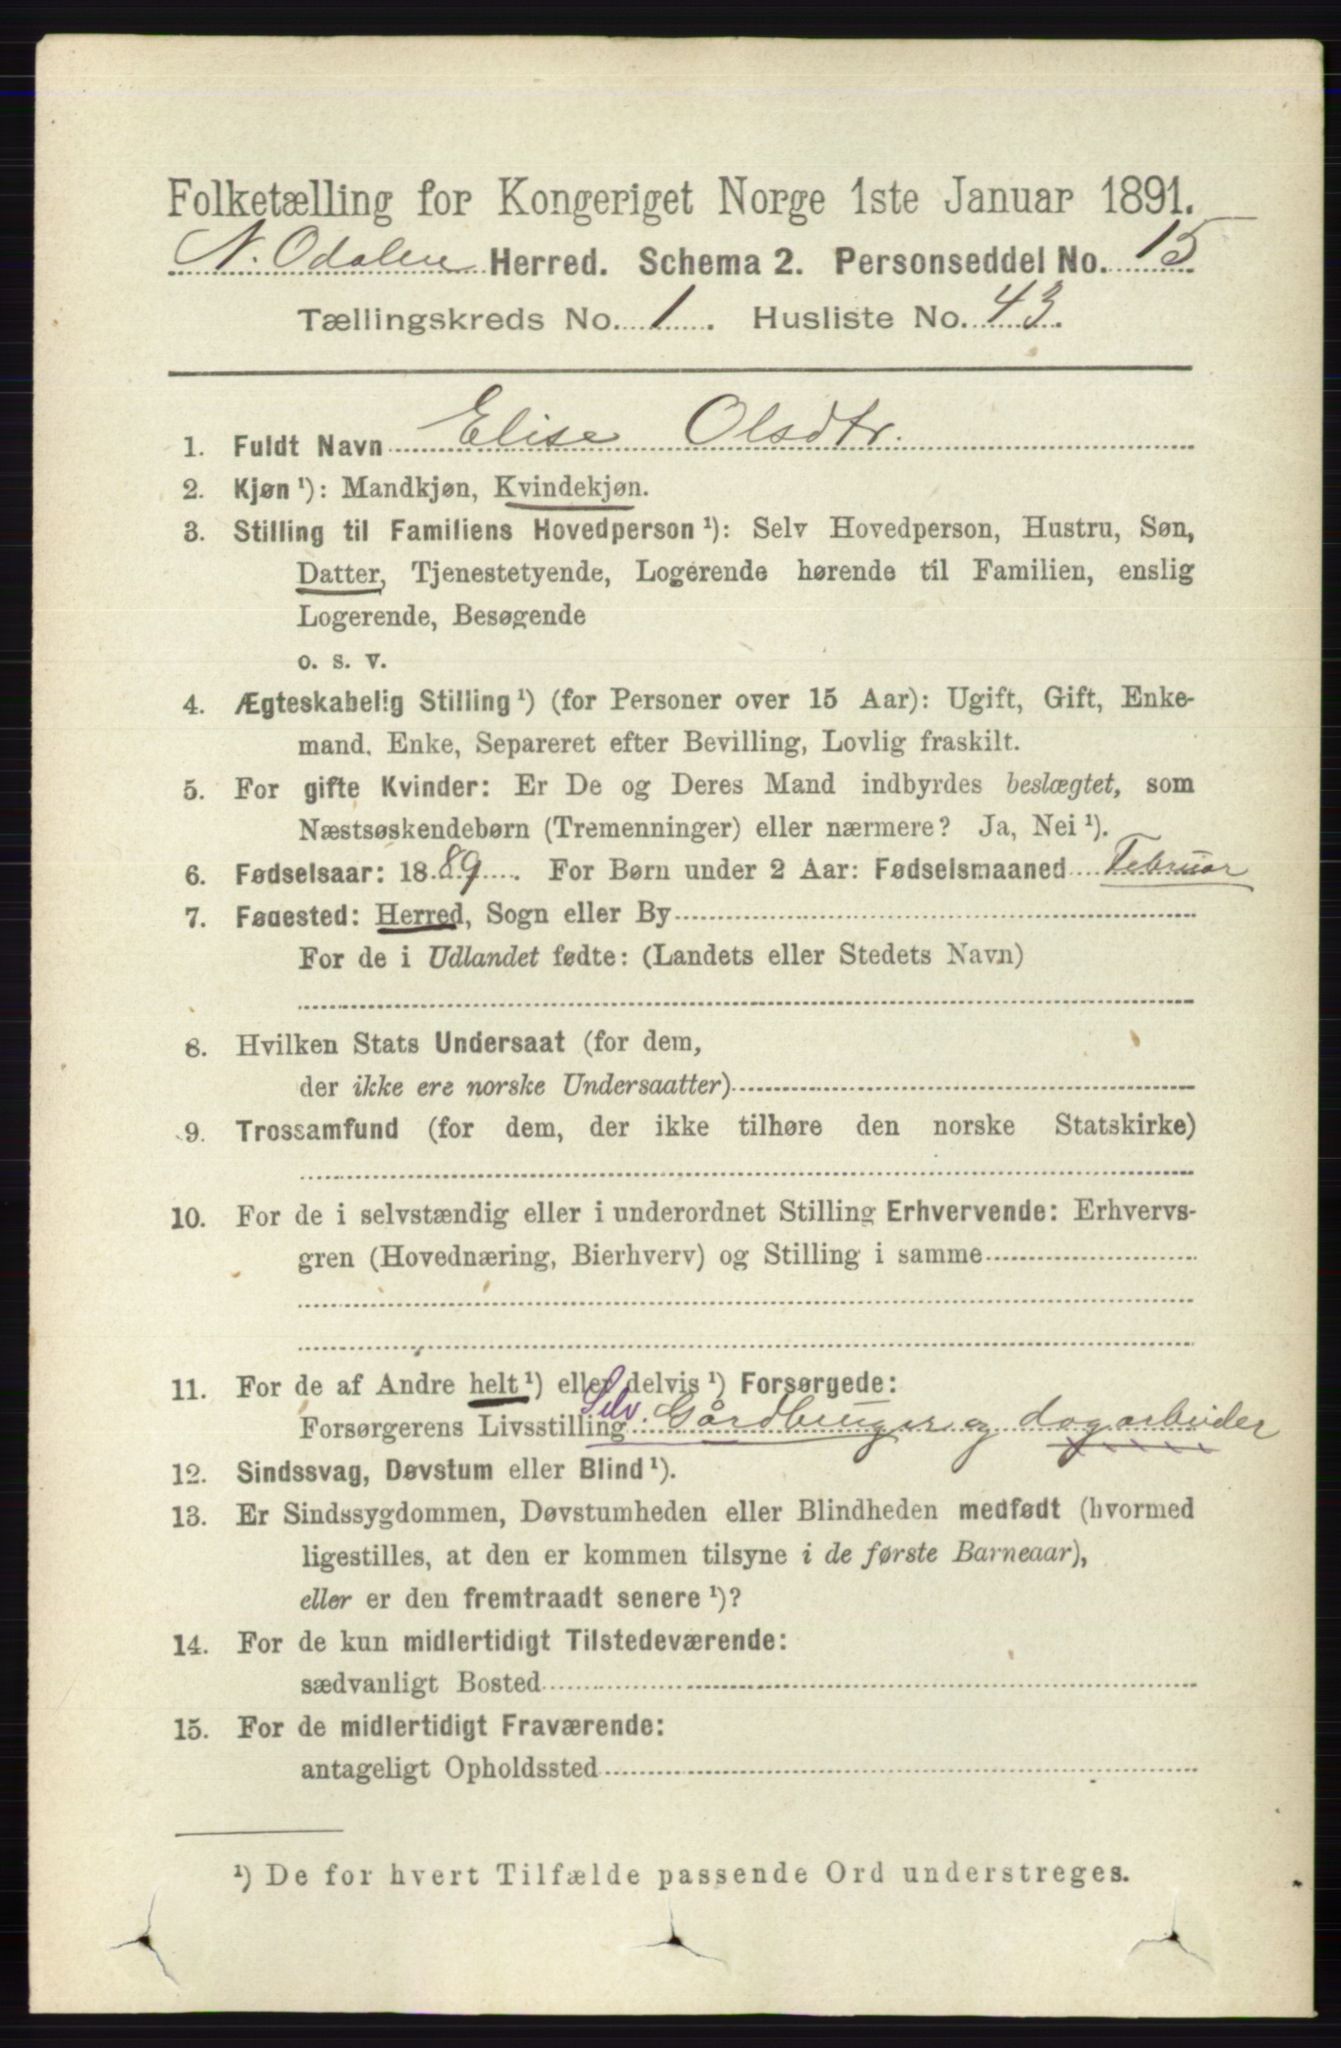 Folketælling for Kongeriget Norge 1ste Januar 1891.
N. Odalen Herred. Schema 2. Personseddel No. 15
Tællingskreds No. 1. Husliste No. 43.
1. Fuldt Navn Elise Olsdtr.
2. Kjøn ¹): Mandkjøn, Kvindekjøn.
3. Stilling til Familiens Hovedperson ¹): Selv Hovedperson, Hustru, Søn,
Datter, Tjenestetyende, Logerende hørende til Familien, enslig
Logerende, Besøgende
o. s. v.
4. Ægteskabelig Stilling ¹) (for Personer over 15 Aar): Ugift, Gift, Enke-
mand, Enke, Separeret efter Bevilling, Lovlig fraskilt.
5. For gifte Kvinder: Er De og Deres Mand indbyrdes beslægtet, som
Næstsøskendebørn (Tremenninger) eller nærmere? Ja, Nei ¹).
6. Fødselsaar: 1889. For Børn under 2 Aar: Fødselsmaaned Februar
7. Fødested: Herred, Sogn eller By
For de i Udlandet fødte: (Landets eller Stedets Navn)
8. Hvilken Stats Undersaat (for dem,
der ikke ere norske Undersaatter)
9. Trossamfund (for dem, der ikke tilhøre den norske Statskirke)
10. For de i selvstændig eller i underordnet Stilling Erhvervende: Erhvervs-
gren (Hovednæring, Bierhverv) og Stilling i samme
11. For de af Andre helt ¹) eller delvis ¹) Forsørgede:
Forsørgerens Livsstilling Selv. Gårdbruger og dagarbeider
12. Sindssvag, Døvstum eller Blind ¹).
13. Er Sindssygdommen, Døvstumheden eller Blindheden medfødt (hvormed
ligestilles, at den er kommen tilsyne i de første Barneaar),
eller er den fremtraadt senere ¹)?
14. For de kun midlertidigt Tilstedeværende:
sædvanligt Bosted
15. For de midlertidigt Fraværende:
antageligt Opholdssted
¹) De for hvert Tilfælde passende Ord understreges.